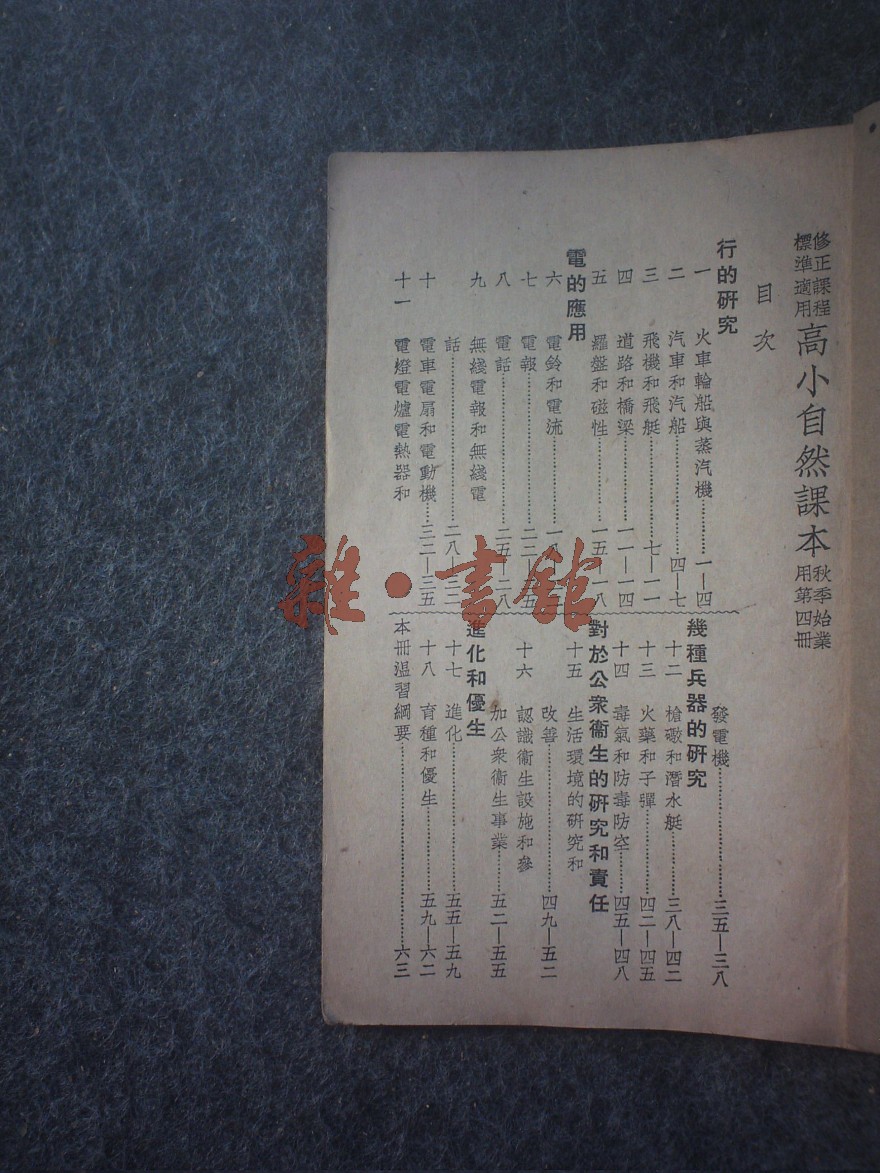 修正課程
標準適用
高小自然課本
秋季始業
用第四冊
目次
行的研究
一 火車輪船與蒸汽機………一—四
二 汽車和汽船………四—七
三 飛機和飛艇………七—一一
四 道路和橋梁………一一—一四
五 羅盤和磁性………一五—一八
電的應用
六 電鈴和電流………一八
七 電報………二二—二五
八 電話………二五—二八
九 無綫電報和無綫電
話………二八—三二
十 電車電扇和電動機…三二—三五
十一 電燈電爐電熱器和
發電機………三五—三八
幾種兵器的研究
十二 槍礮和潛水艇………三八—四二
十三 火藥和子彈………四二—四五
十四 毒氣和防毒防空…四五—四八
對於公衆衞生的研究和責任
十五 生活環境的研究和
改善………四九—五二
十六 認識衞生設施和參
加公衆衞生事業…五二—五五
進化和優生
十七 進化………五五—五九
十八 育種和優生………五九—六二
本冊溫習綱要………六三
雜·書館